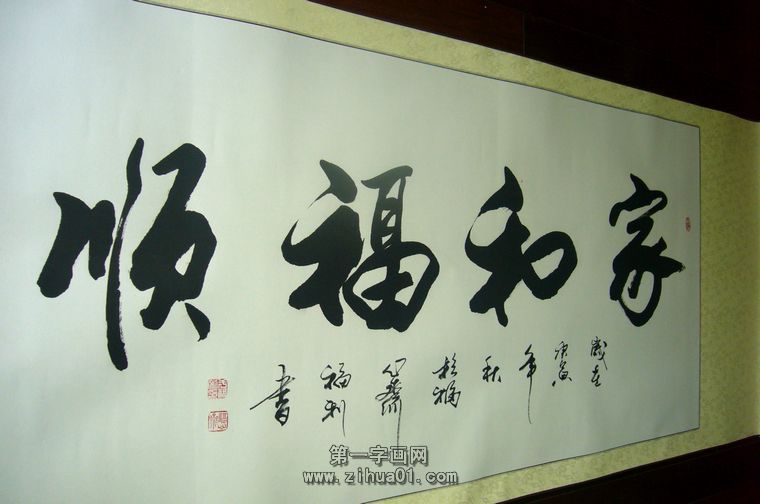 家和福顺
岁在
庚寅
年
秋
福利
书
第一字画网
www.zihua01.com